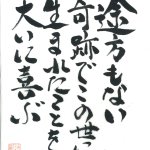 途方もない
奇跡でこの世に
生まれたことを
大いに喜ぶ